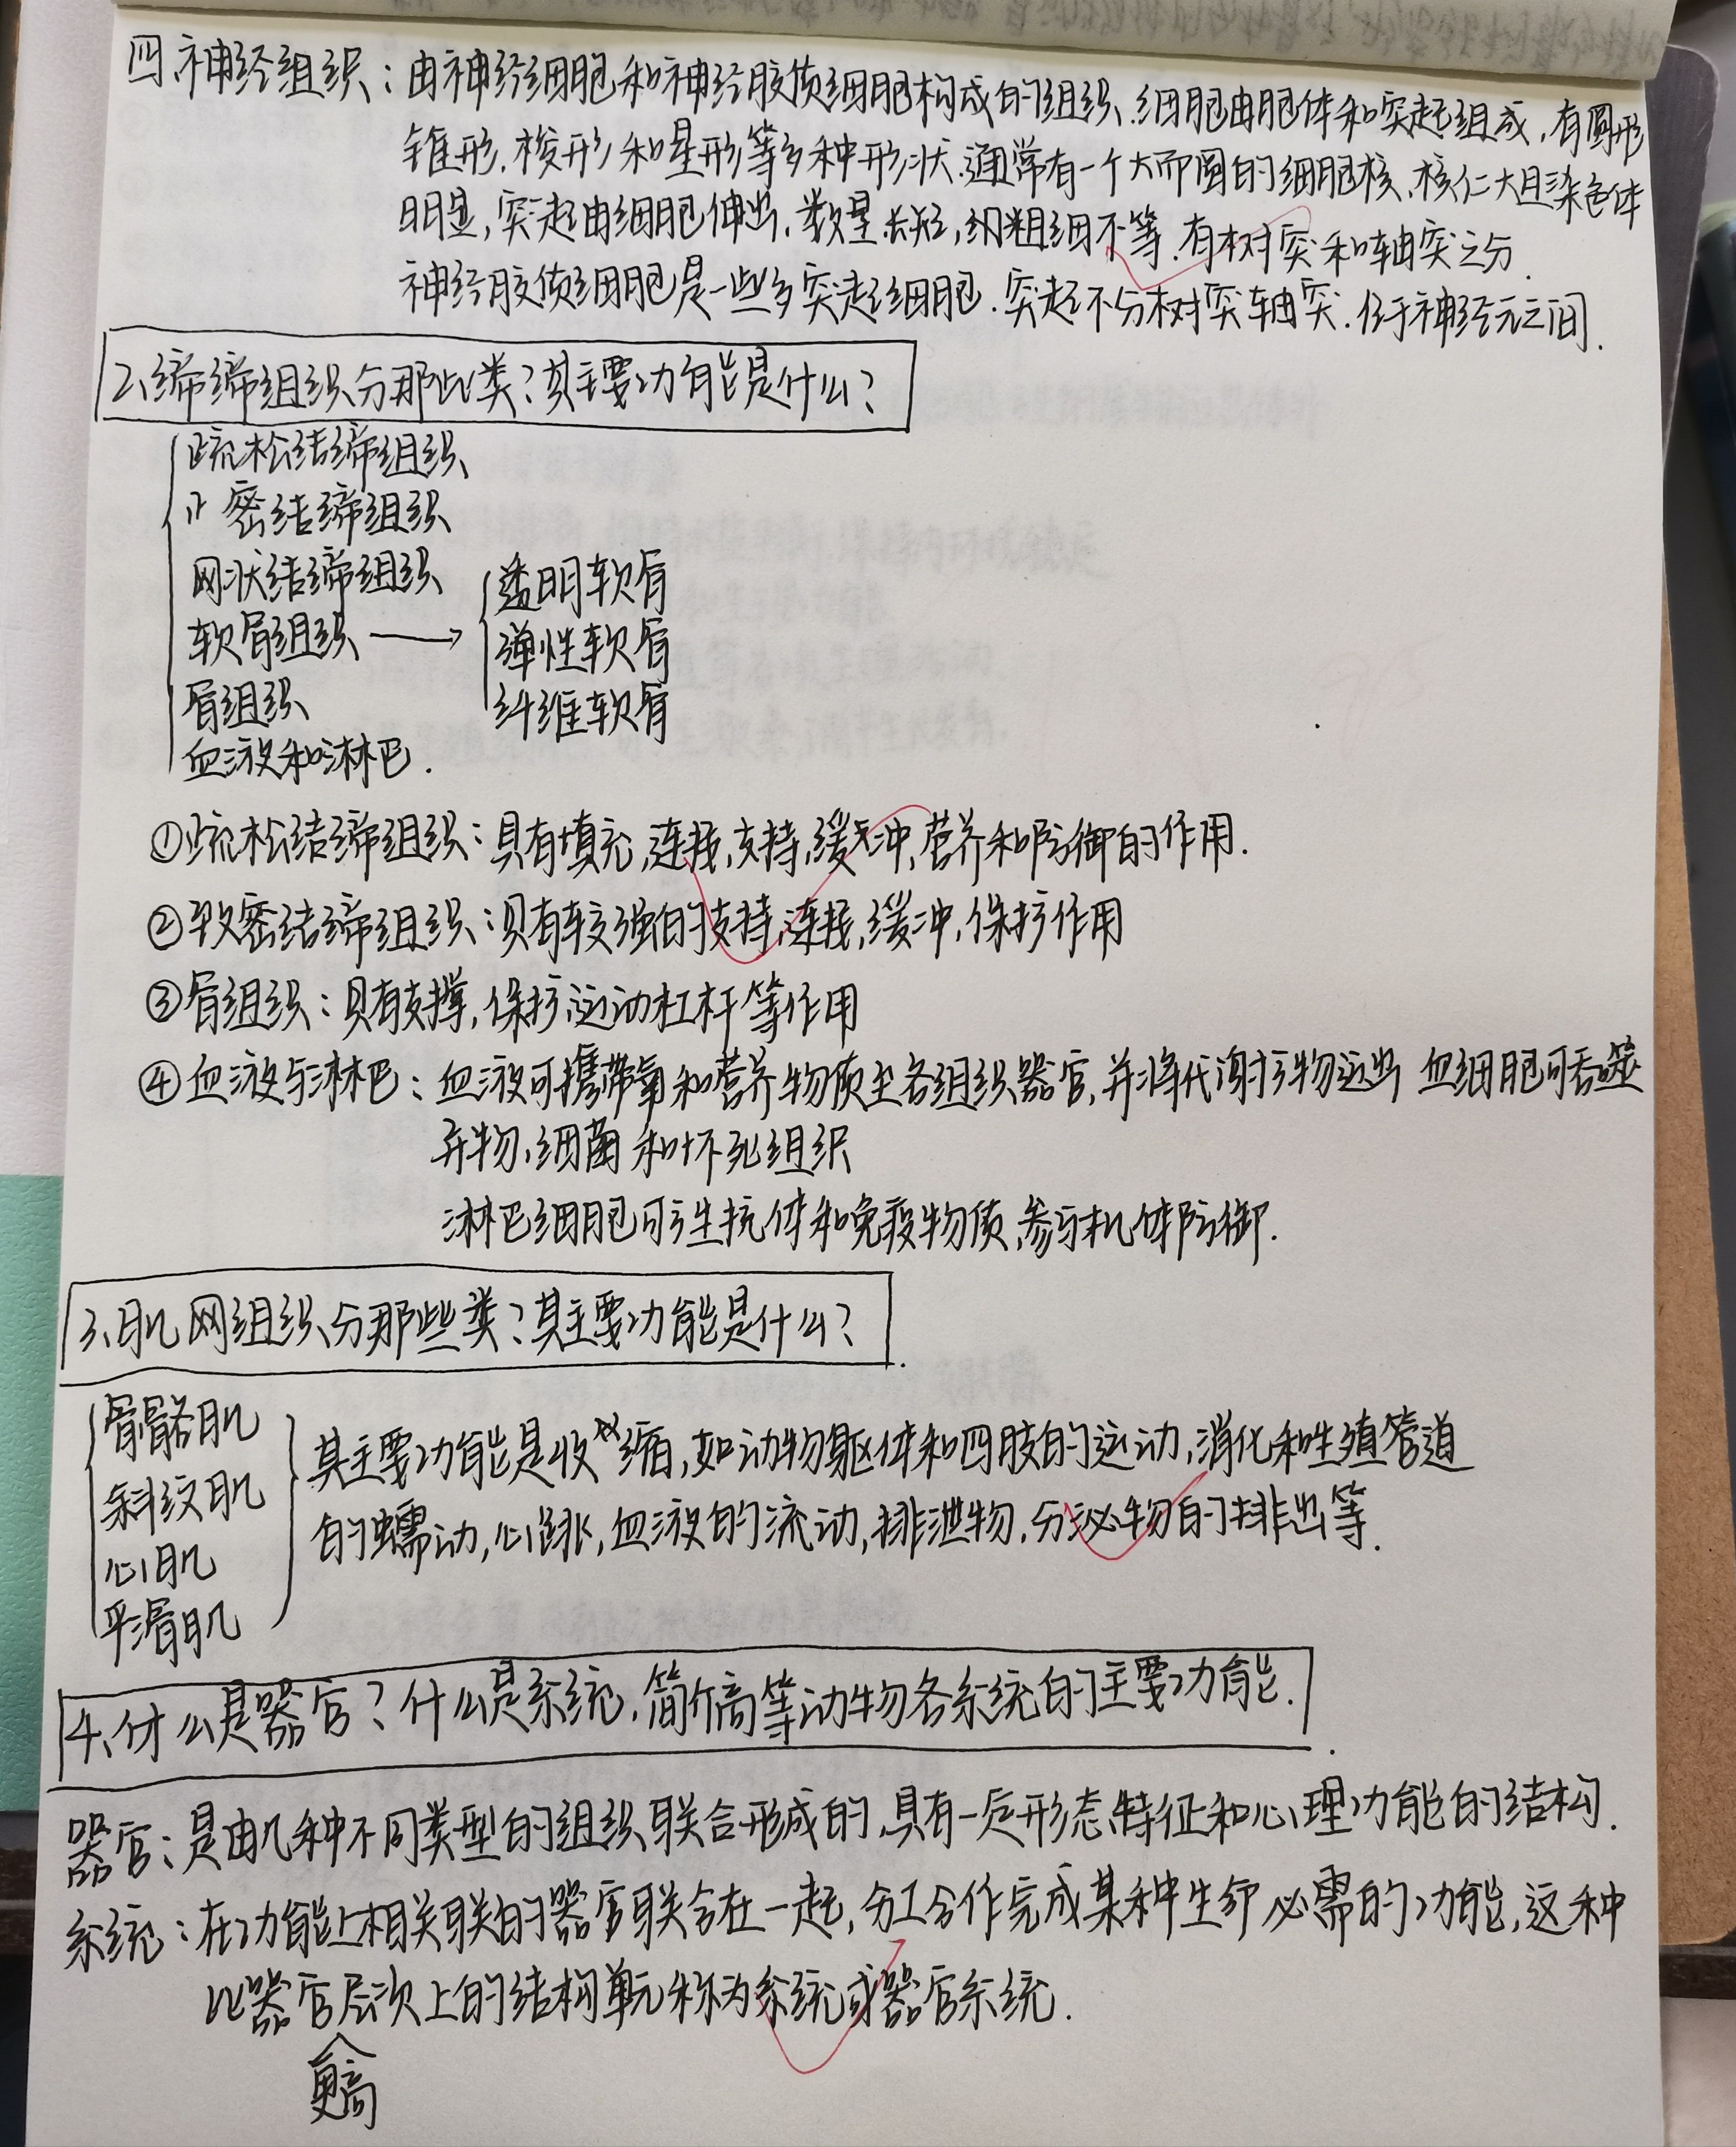 四、神经组织：由神经细胞和神经胶质细胞构成的组织、细胞由胞体和突起组成，有圆形
锥形，梭形和星形等多种形状.通常有一个大而圆的细胞核、核仁大且染色体
明显，突起由细胞伸出，数量、长短，粗细不等.有树突和轴突之分.
神经胶质细胞是一些多突起细胞.突起不分树突轴突.位于神经元之间.
2、缔缔组织分那些类？其主要功能是什么？
疏松结缔组织
致密结缔组织
网状结缔组织
软骨组织 → 透明软骨
弹性软骨
纤维软骨
骨组织
血液和淋巴.
①疏松结缔组织：具有填充,连接,支持,缓冲,营养和防御的作用.
②致密结缔组织：具有较强的支持,连接,缓冲,保护作用
③骨组织：具有支撑，保护、运动杠杆等作用
④血液与淋巴：血液可携带氧和营养物质至各组织器官,并将代谢产物运出 血细胞可吞噬
异物、细菌和坏死组织
淋巴细胞可产生抗体和免疫物质,参与机体防御.
3、肌网组织分那些类？其主要功能是什么？
骨骼肌
斜纹肌
心肌
平滑肌
其主要功能是收缩,如动物躯体和四肢的运动,消化和生殖管道
的蠕动,心跳,血液的流动,排泄物,分泌物的排出等.
4、什么是器官？什么是系统，简介高等动物各系统的主要功能.
器官：是由几种不同类型的组织联合形成的,具有一定形态特征和心理功能的结构.
系统：在功能上相关联的器官联合在一起，分工合作完成某种生命必需的功能,这种
比器官层次上的结构单元称为系统或器官系统.
更高